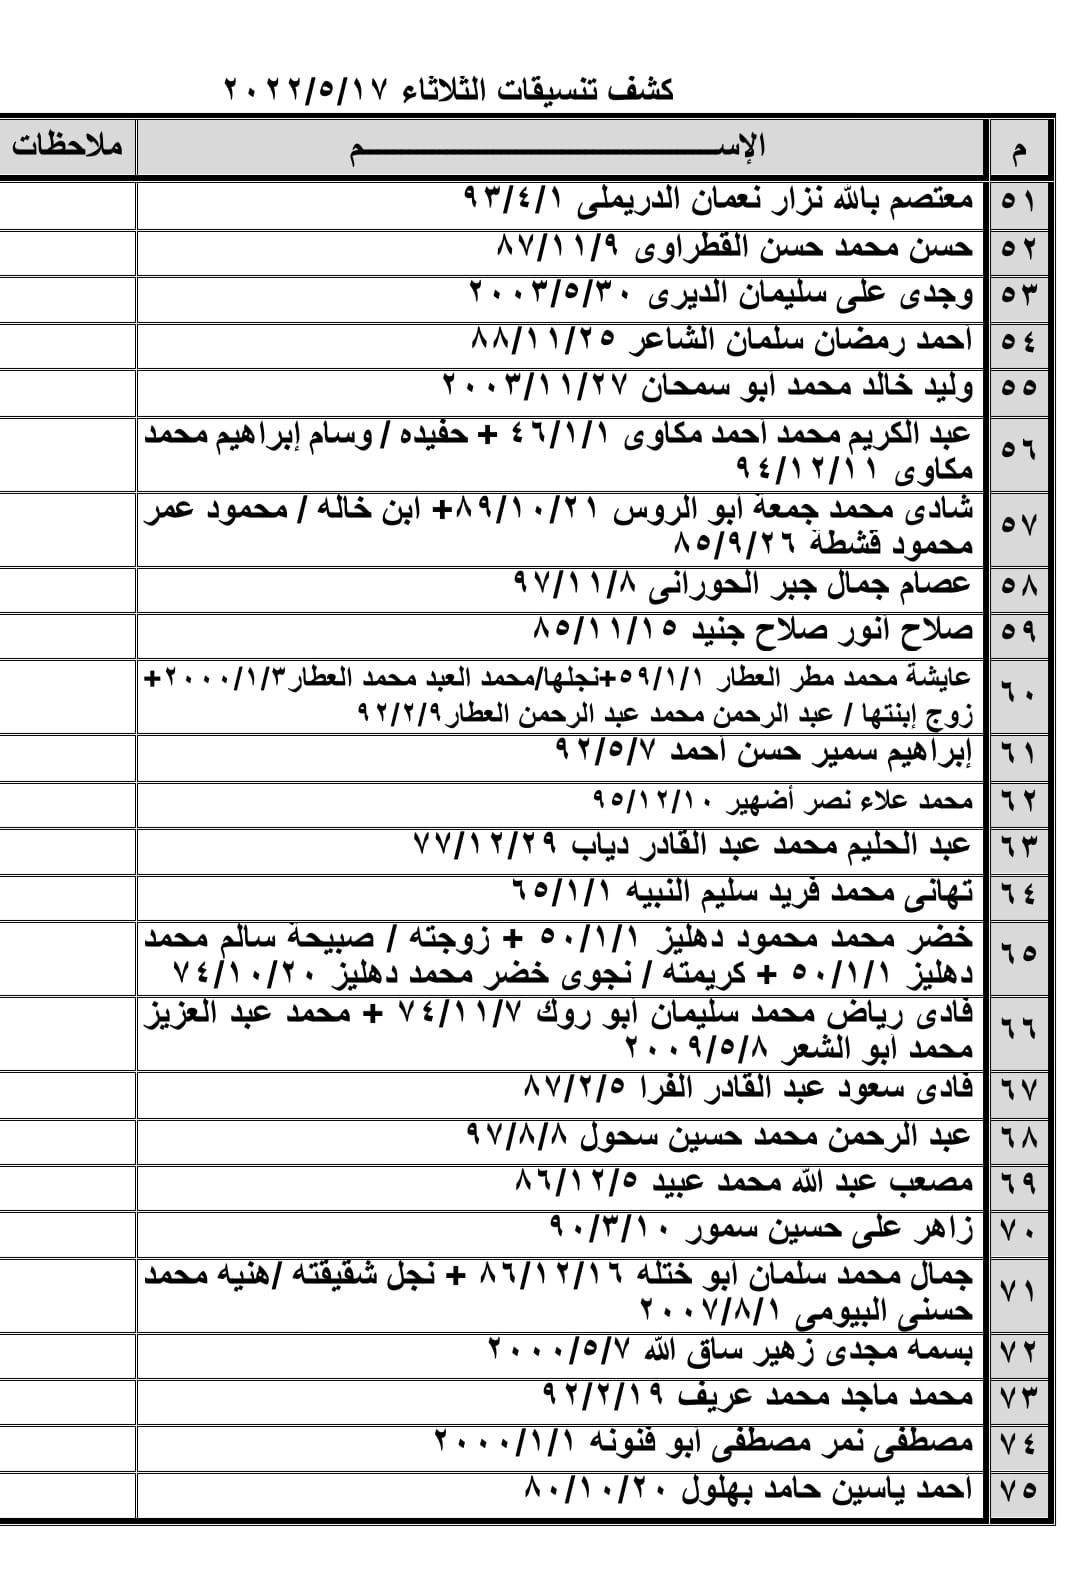 كشف تنسيقات الثلاثاء ٢٠٢٢/٥/١٧
م الإســـــــــــــــــــــــم ملاحظات
٥١ معتصم بالله نزار نعمان الدريملى ٩٣/٤/١
٥٢ حسن محمد حسن القطراوى ٨٧/١١/٩
٥٣ وجدى على سليمان الديرى ٢٠٠٣/٥/٣٠
٥٤ أحمد رمضان سلمان الشاعر ٨٨/١١/٢٥
٥٥ وليد خالد محمد أبو سمحان ٢٠٠٣/١١/٢٧
٥٦ عبد الكريم محمد أحمد مكاوى ٤٦/١/١ + حفيده / وسام إبراهيم محمد
مكاوى ٩٤/١٢/١١
٥٧ شادى محمد جمعة أبو الروس ٨٩/١٠/٢١+ ابن خاله / محمود عمر
محمود قشطة ٨٥/٩/٢٦
٥٨ عصام جمال جبر الحورانى ٩٧/١١/٨
٥٩ صلاح أنور صلاح جنيد ٨٥/١١/١٥
٦٠ عايشة محمد مطر العطار ٥٩/١/١+نجلها/محمد العبد محمد العطار٢٠٠٠/١/٣+
زوج إبنتها / عبد الرحمن محمد عبد الرحمن العطار٩٢/٢/٩
٦١ إبراهيم سمير حسن أحمد ٩٢/٥/٧
٦٢ محمد علاء نصر أضهير ٩٥/١٢/١٠
٦٣ عبد الحليم محمد عبد القادر دياب ٧٧/١٢/٢٩
٦٤ تهانى محمد فريد سليم النبيه ٦٥/١/١
٦٥ خضر محمد محمود دهليز ٥٠/١/١ + زوجته / صبيحة سالم محمد
دهليز ٥٠/١/١ + كريمته / نجوى خضر محمد دهليز ٧٤/١٠/٢٠
٦٦ فادى رياض محمد سليمان أبو روك ٧٤/١١/٧ + محمد عبد العزيز
محمد أبو الشعر ٢٠٠٩/٥/٨
٦٧ فادى سعود عبد القادر الفرا ٨٧/٢/٥
٦٨ عبد الرحمن محمد حسين سحول ٩٧/٨/٨
٦٩ مصعب عبد الله محمد عبيد ٨٦/١٢/٥
٧٠ زاهر على حسين سمور ٩٠/٣/١٠
٧١ جمال محمد سلمان أبو ختله ٨٦/١٢/١٦ + نجل شقيقته /هنيه محمد
حسنى البيومى ٢٠٠٧/٨/١
٧٢ بسمه مجدى زهير ساق الله ٢٠٠٠/٥/٧
٧٣ محمد ماجد محمد عريف ٩٢/٢/١٩
٧٤ مصطفى نمر مصطفى أبو فنونه ٢٠٠٠/١/١
٧٥ أحمد ياسين حامد بهلول ٨٠/١٠/٢٠